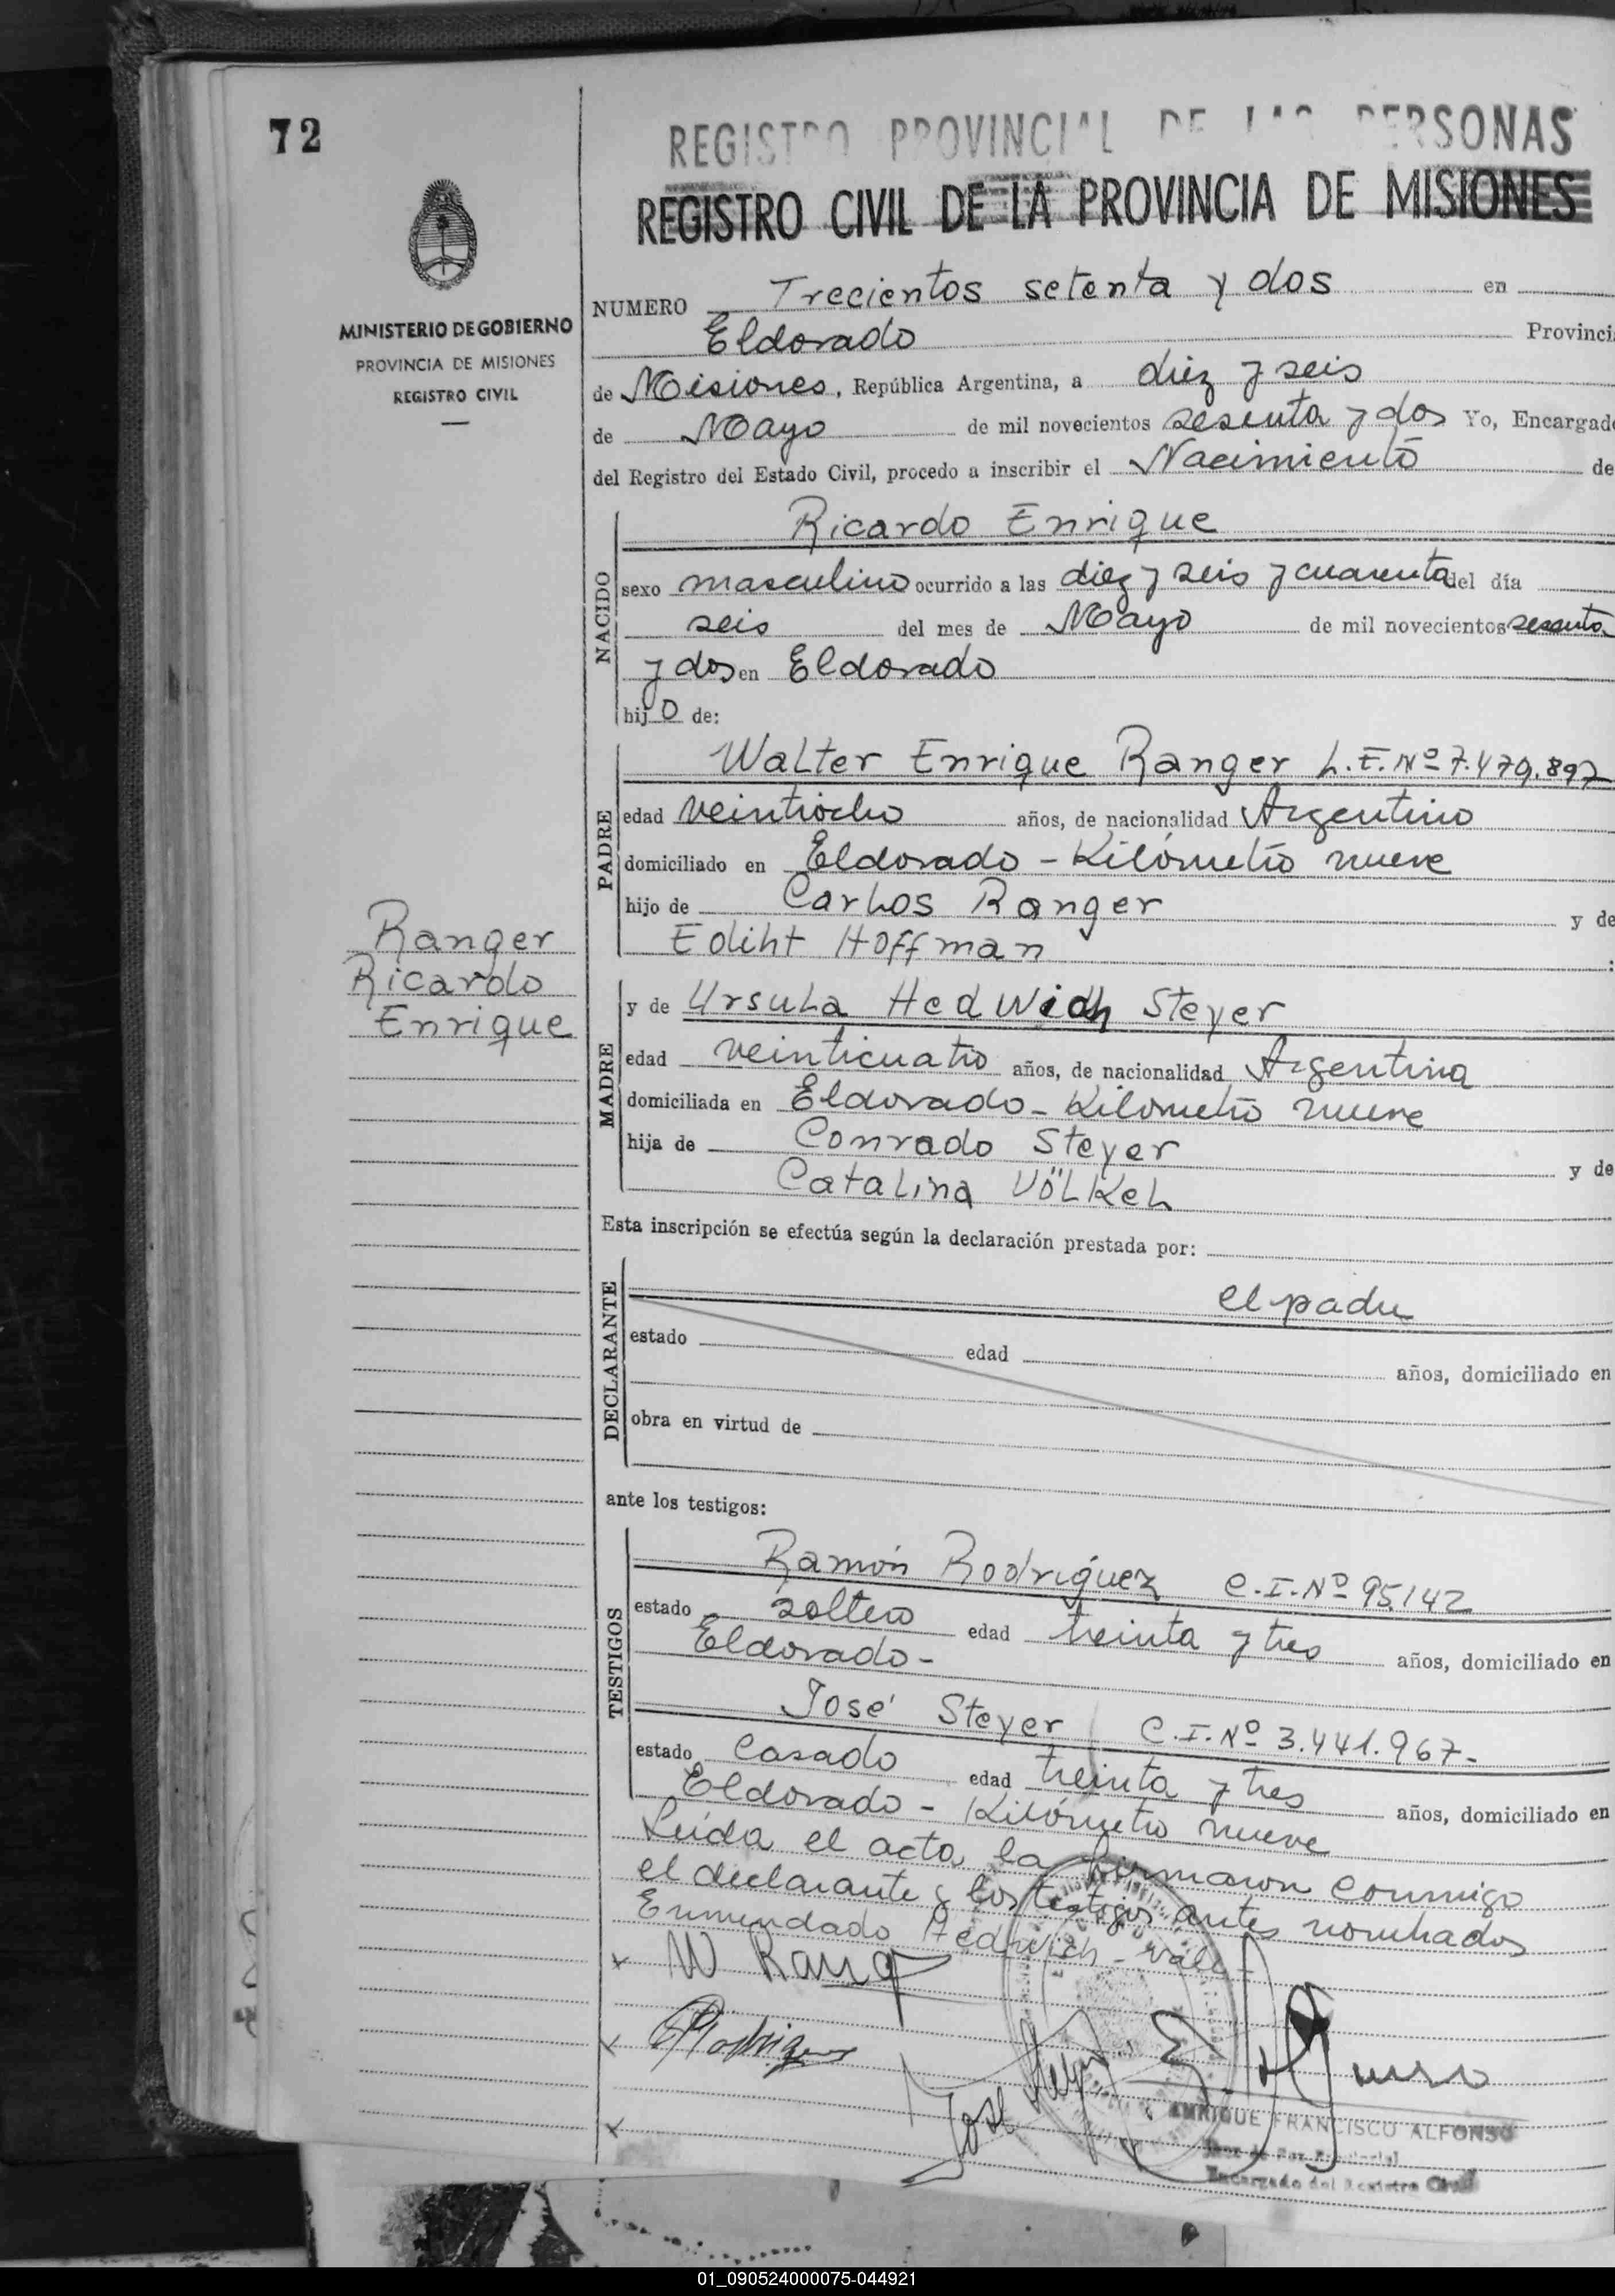 72
REGISTRO PROVINCIAL DE LAS PERSONAS
REGISTRO CIVIL DE LA PROVINCIA DE MISIONES
MINISTERIO DE GOBIERNO
PROVINCIA DE MISIONES
REGISTRO CIVIL
NUMERO Trecientos setenta y dos en
Eldorado Provinci
de Misiones, República Argentina, a diez y seis
de Mayo de mil novecientos sesenta y dos Yo, Encargad
del Registro del Estado Civil, procedo a inscribir el Nacimiento de
NACIDO
Ricardo Enrique
sexo masculino ocurrido a las diez y seis y cuarenta del día
seis del mes de Mayo de mil novecientos sesenta
y dos en Eldorado
hijo de:
PADRE
Walter Enrique Ranger L.E.Nº 7.479.897
edad veintiocho años, de nacionalidad Argentino
domiciliado en Eldorado - Kilómetro nueve
hijo de Carlos Ranger y de
Ediht Hoffman
Ranger
Ricardo
Enrique
MADRE
y de Ursula Hedwich Steyer
edad veinticuatro años, de nacionalidad Argentina
domiciliada en Eldorado - Kilometro nueve
hija de Conrado Steyer y de
Catalina Völkel
Esta inscripción se efectúa según la declaración prestada por:
DECLARANTE
el padre
estado edad años, domiciliado en
obra en virtud de
ante los testigos:
TESTIGOS
Ramón Rodríguez C.I.Nº 95.142
estado soltero edad treinta y tres años, domiciliado en
Eldorado-
José Steyer C.I.Nº 3.441.967-
estado casado edad treinta y tres años, domiciliado en
Eldorado - Kilómetro nueve
Leída el acta, la firmaron conmigo
el declarante y los testigos antes nombrados
Enmendado Hedwich - vale -
W Rang
Jose Steyer
ENRIQUE FRANCISCO ALFONSO
Juez de Paz
Encargado del Registro Civil
01_090524000075-044921